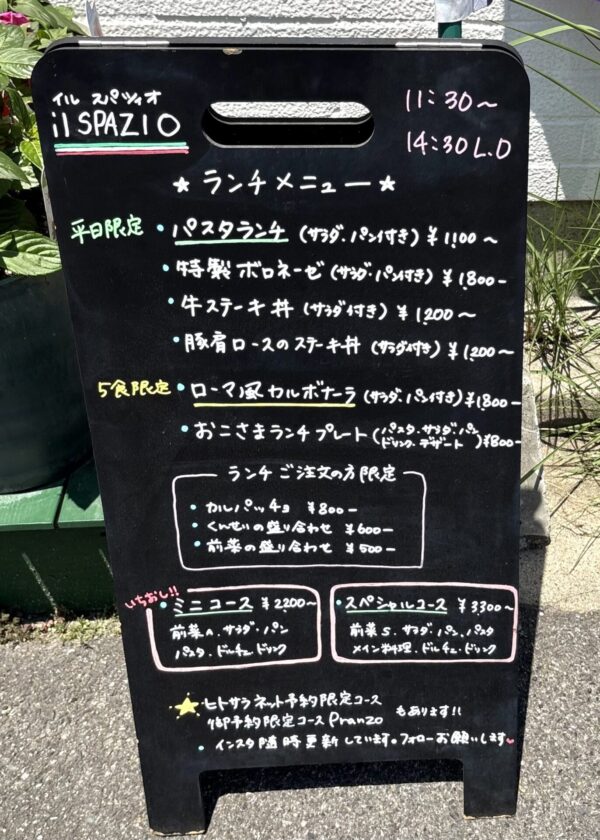 イル スパツィオ
il SPAZIO
11:30～
14:30 L.O
★ ランチメニュー ★
平日限定 ・パスタランチ (サラダ・パン付き) ¥1,100～
・特製ボロネーゼ (サラダ・パン付き) ¥1,800-
・牛ステーキ丼 (サラダ付き) ¥1,200～
・豚肩ロースのステーキ丼 (サラダ付き) ¥1,200～
5食限定 ・ローマ風カルボナーラ (サラダ・パン付き) ¥1,800-
・おこさまランチプレート (パスタ・サラダ・パン
ドリンク・デザート) ¥800-
ランチご注文の方限定
・カルパッチョ ¥800-
・くんせいの盛り合わせ ¥600-
・前菜の盛り合わせ ¥500-
いちおし!!
・ミニコース ¥2200～
前菜n.サラダ・パン
パスタ・ドルチェ・ドリンク
・スペシャルコース ¥3300～
前菜S.サラダ・パン・パスタ
メイン料理・ドルチェ・ドリンク
★ヒトサラネット予約限定コース
御予約限定コース Pranzo もあります!!
・インスタ随時更新しています。フォローお願いします♥